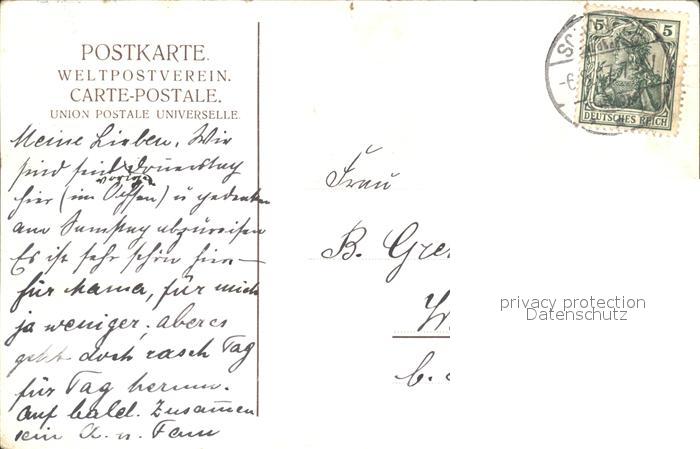 POSTKARTE.
WELTPOSTVEREIN.
CARTE-POSTALE.
UNION POSTALE UNIVERSELLE.
Meine Lieben. Wir
sind seit vorigen Donnerstag
hier (im Ochsen) u gedenken
am Samstag abzureisen
Es ist sehr schön hier –
für Mama, für mich
ja weniger; aber es
geht doch rasch Tag
für Tag herum.
Auf bald. Zusammen
sein
5 5
DEUTSCHES REICH
Frau
B. Gre
b.
privacy protection
Datenschutz